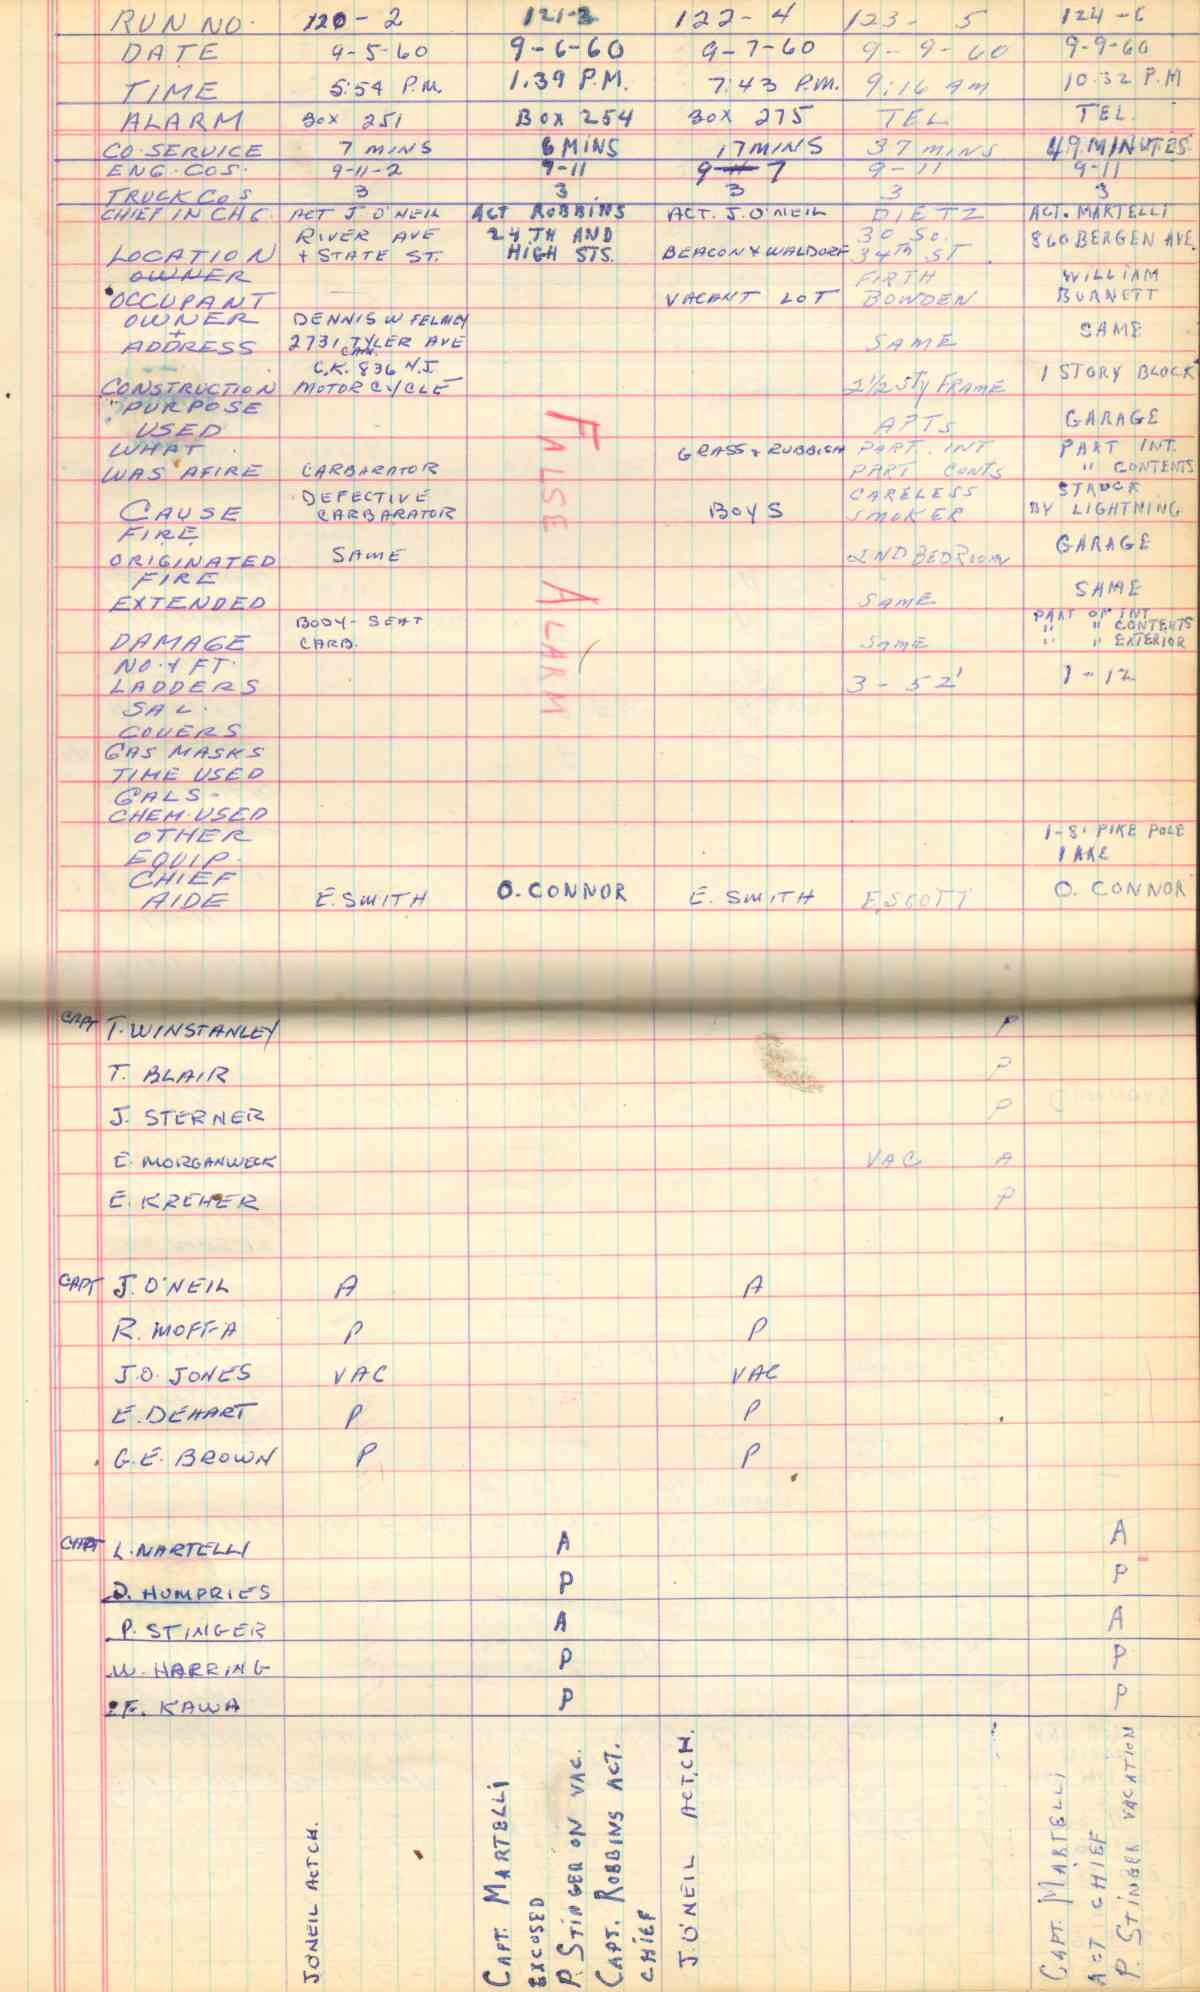 RUN NO. 120-2 121-3 122-4 123-5 124-6
DATE 9-5-60 9-6-60 9-7-60 9-9-60 9-9-60
TIME 5:54 P.M. 1.39 P.M. 7:43 P.M. 9:16 AM 10:32 P.M
ALARM BOX 251 BOX 254 BOX 275 TEL TEL.
CO. SERVICE 7 MINS 6 MINS 17 MINS 37 MINS 49 MINUTES
ENG. COS. 9-11-2 9-11 9-11 7 9-11 9-11
TRUCK COS 3 3 3 3 3
CHIEF IN CHG. ACT J. O'NEIL ACT ROBBINS ACT. J. O'NEIL DIETZ ACT. MARTELLI
RIVER AVE 24TH AND 30 SO. 860 BERGEN AVE.
LOCATION + STATE ST. HIGH STS. BEACON + WALDORF 34TH ST
OWNER FIRTH WILLIAM
OCCUPANT VACANT LOT BOWDEN BURNETT
OWNER DENNIS W FELMEY
+ ADDRESS 2731 TYLER AVE SAME SAME
CAM.
C.K. 836 N.J.
CONSTRUCTION MOTORCYCLE 2 1/2 STY FRAME 1 STORY BLOCK
" PURPOSE
USED APTS GARAGE
WHAT GRASS + RUBBISH PART. INT PART INT.
WAS AFIRE CARBARATOR PART CONTS " CONTENTS
DEFECTIVE CARELESS STRUCK
CAUSE CARBARATOR BOYS SMOKER BY LIGHTNING
FIRE
ORIGINATED SAME 2ND BEDROOM GARAGE
FIRE
EXTENDED SAME SAME
BODY-SEAT PART OF INT
" " CONTENTS
DAMAGE CARB. SAME " " EXTERIOR
FALSE ALARM
NO. & FT.
LADDERS 3-52' 1-12
SAL.
COVERS
GAS MASKS
TIME USED
GALS-
CHEM. USED
OTHER 1-8' PIKE POLE
EQUIP. 1 AXE
CHIEF
AIDE E. SMITH O. CONNOR E. SMITH E. SCOTT O. CONNOR
CAPT T. WINSTANLEY P
T. BLAIR P
J. STERNER P
E. MORGANWECK VAC A
E. KREHER P
CAPT J. O'NEIL A A
R. MOFFA P P
J.O. JONES VAC VAC
E. DEHART P P
G.E. BROWN P P
CAPT L. MARTELLI A A
D. HUMPRIES P P
P. STINGER A A
W. HARRING P P
F. KAWA P P
J O'NEIL ACT CH.
CAPT. MARTELLI
EXCUSED
P. STINGER ON VAC.
CAPT. ROBBINS ACT.
CHIEF
J. O'NEIL ACT. CH.
CAPT. MARTELLI
ACT CHIEF
P. STINGER VACATION